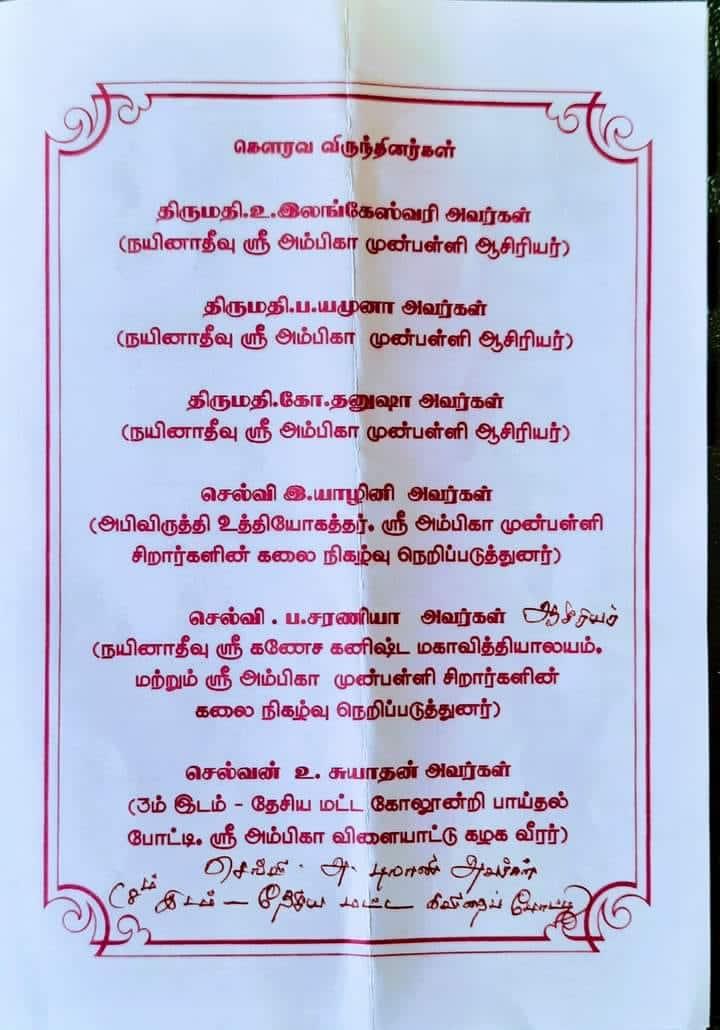 கௌரவ விருந்தினர்கள்
திருமதி.உ.இலங்கேஸ்வரி அவர்கள்
(நயினாதீவு ஸ்ரீ அம்பிகா முன்பள்ளி ஆசிரியர்)
திருமதி.ப.யமுனா அவர்கள்
(நயினாதீவு ஸ்ரீ அம்பிகா முன்பள்ளி ஆசிரியர்)
திருமதி.கோ.தனுஷா அவர்கள்
(நயினாதீவு ஸ்ரீ அம்பிகா முன்பள்ளி ஆசிரியர்)
செல்வி இ.யாழினி அவர்கள்
(அபிவிருத்தி உத்தியோகத்தர், ஸ்ரீ அம்பிகா முன்பள்ளி
சிறார்களின் கலை நிகழ்வு நெறிப்படுத்துனர்)
செல்வி . ப.சரணியா அவர்கள் ஆசிரியர்
(நயினாதீவு ஸ்ரீ கணேச கனிஷ்ட மகாவித்தியாலயம்,
மற்றும் ஸ்ரீ அம்பிகா முன்பள்ளி சிறார்களின்
கலை நிகழ்வு நெறிப்படுத்துனர்)
செல்வன் உ. சுயாதன் அவர்கள்
(3ம் இடம் - தேசிய மட்ட கோலூன்றி பாய்தல்
போட்டி, ஸ்ரீ அம்பிகா விளையாட்டு கழக வீரர்)
செல்வி . அ. அவர்கள்
இடம் - தேசிய மட்ட போட்டி)